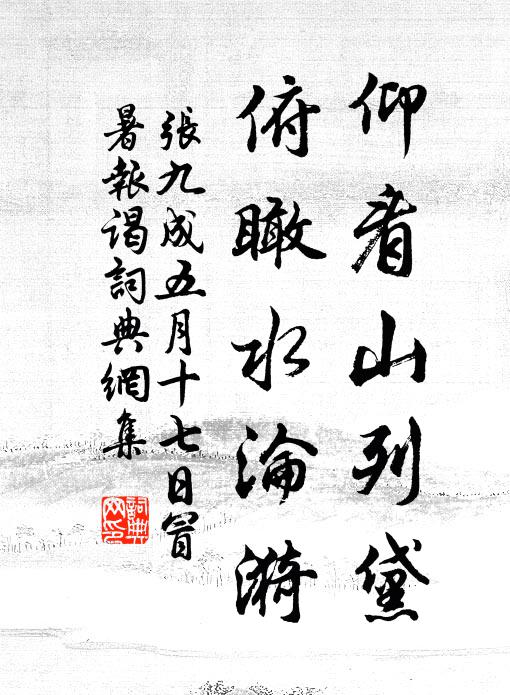 仰看山列黛
俯瞰水淪漪
張九成五月十七日冒
暑報謁詞典網集
詞典
網印